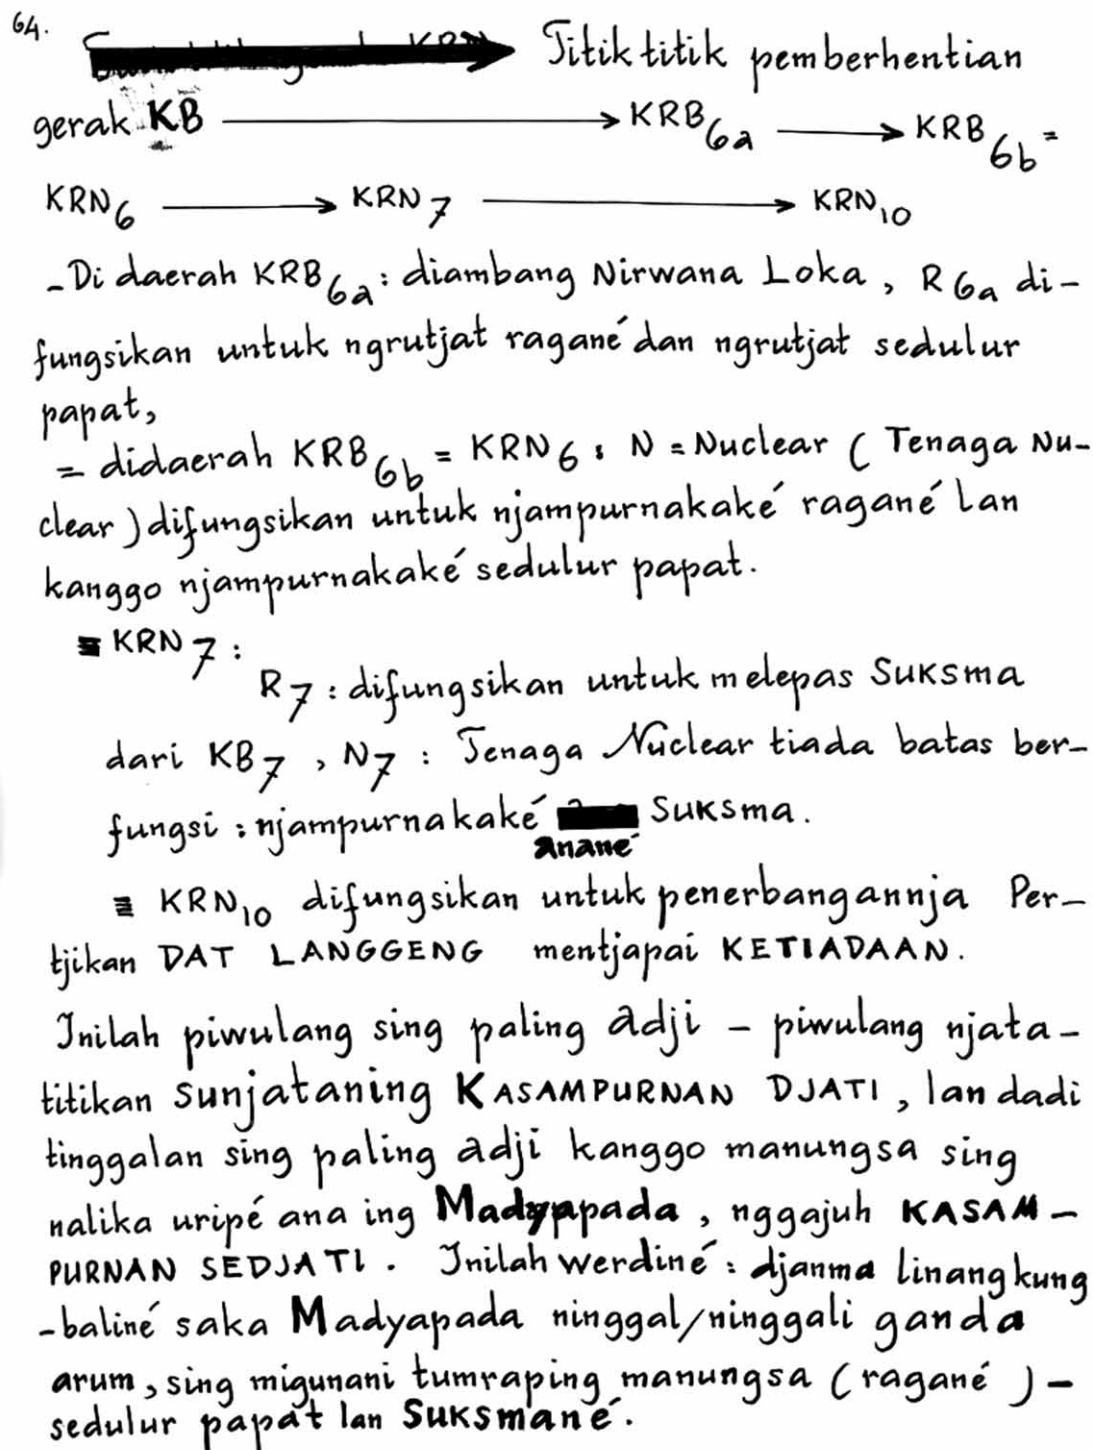 64.
Titik titik pemberhentian
gerak KB → KRB6a → KRB6b =
KRN6 → KRN7 → KRN10
- Di daerah KRB6a : diambang Nirwana Loka, R6a di-
fungsikan untuk ngrutjat ragané dan ngrutjat sedulur
papat,
= didaerah KRB6b = KRN6 : N = Nuclear ( Tenaga Nu-
clear ) difungsikan untuk njampurnakaké ragané lan
kanggo njampurnakaké sedulur papat.
≡ KRN7 :
R7 : difungsikan untuk melepas Suksma
dari KB7 , N7 : Tenaga Nuclear tiada batas ber-
fungsi : njampurnakaké Suksma.
anané
≡ KRN10 difungsikan untuk penerbangannja Per-
tjikan DAT LANGGENG mentjapai KETIADAAN.
Inilah piwulang sing paling adji - piwulang njata-
titikan sunjataning KASAMPURNAN DJATI , lan dadi
tinggalan sing paling adji kanggo manungsa sing
nalika uripé ana ing Madyapada , nggajuh KASAM-
PURNAN SEDJATI . Inilah werdiné : djanma linangkung
-baliné saka Madyapada ninggal/ninggali ganda
arum, sing migunani tumraping manungsa ( ragané ) -
sedulur papat lan Suksmané.